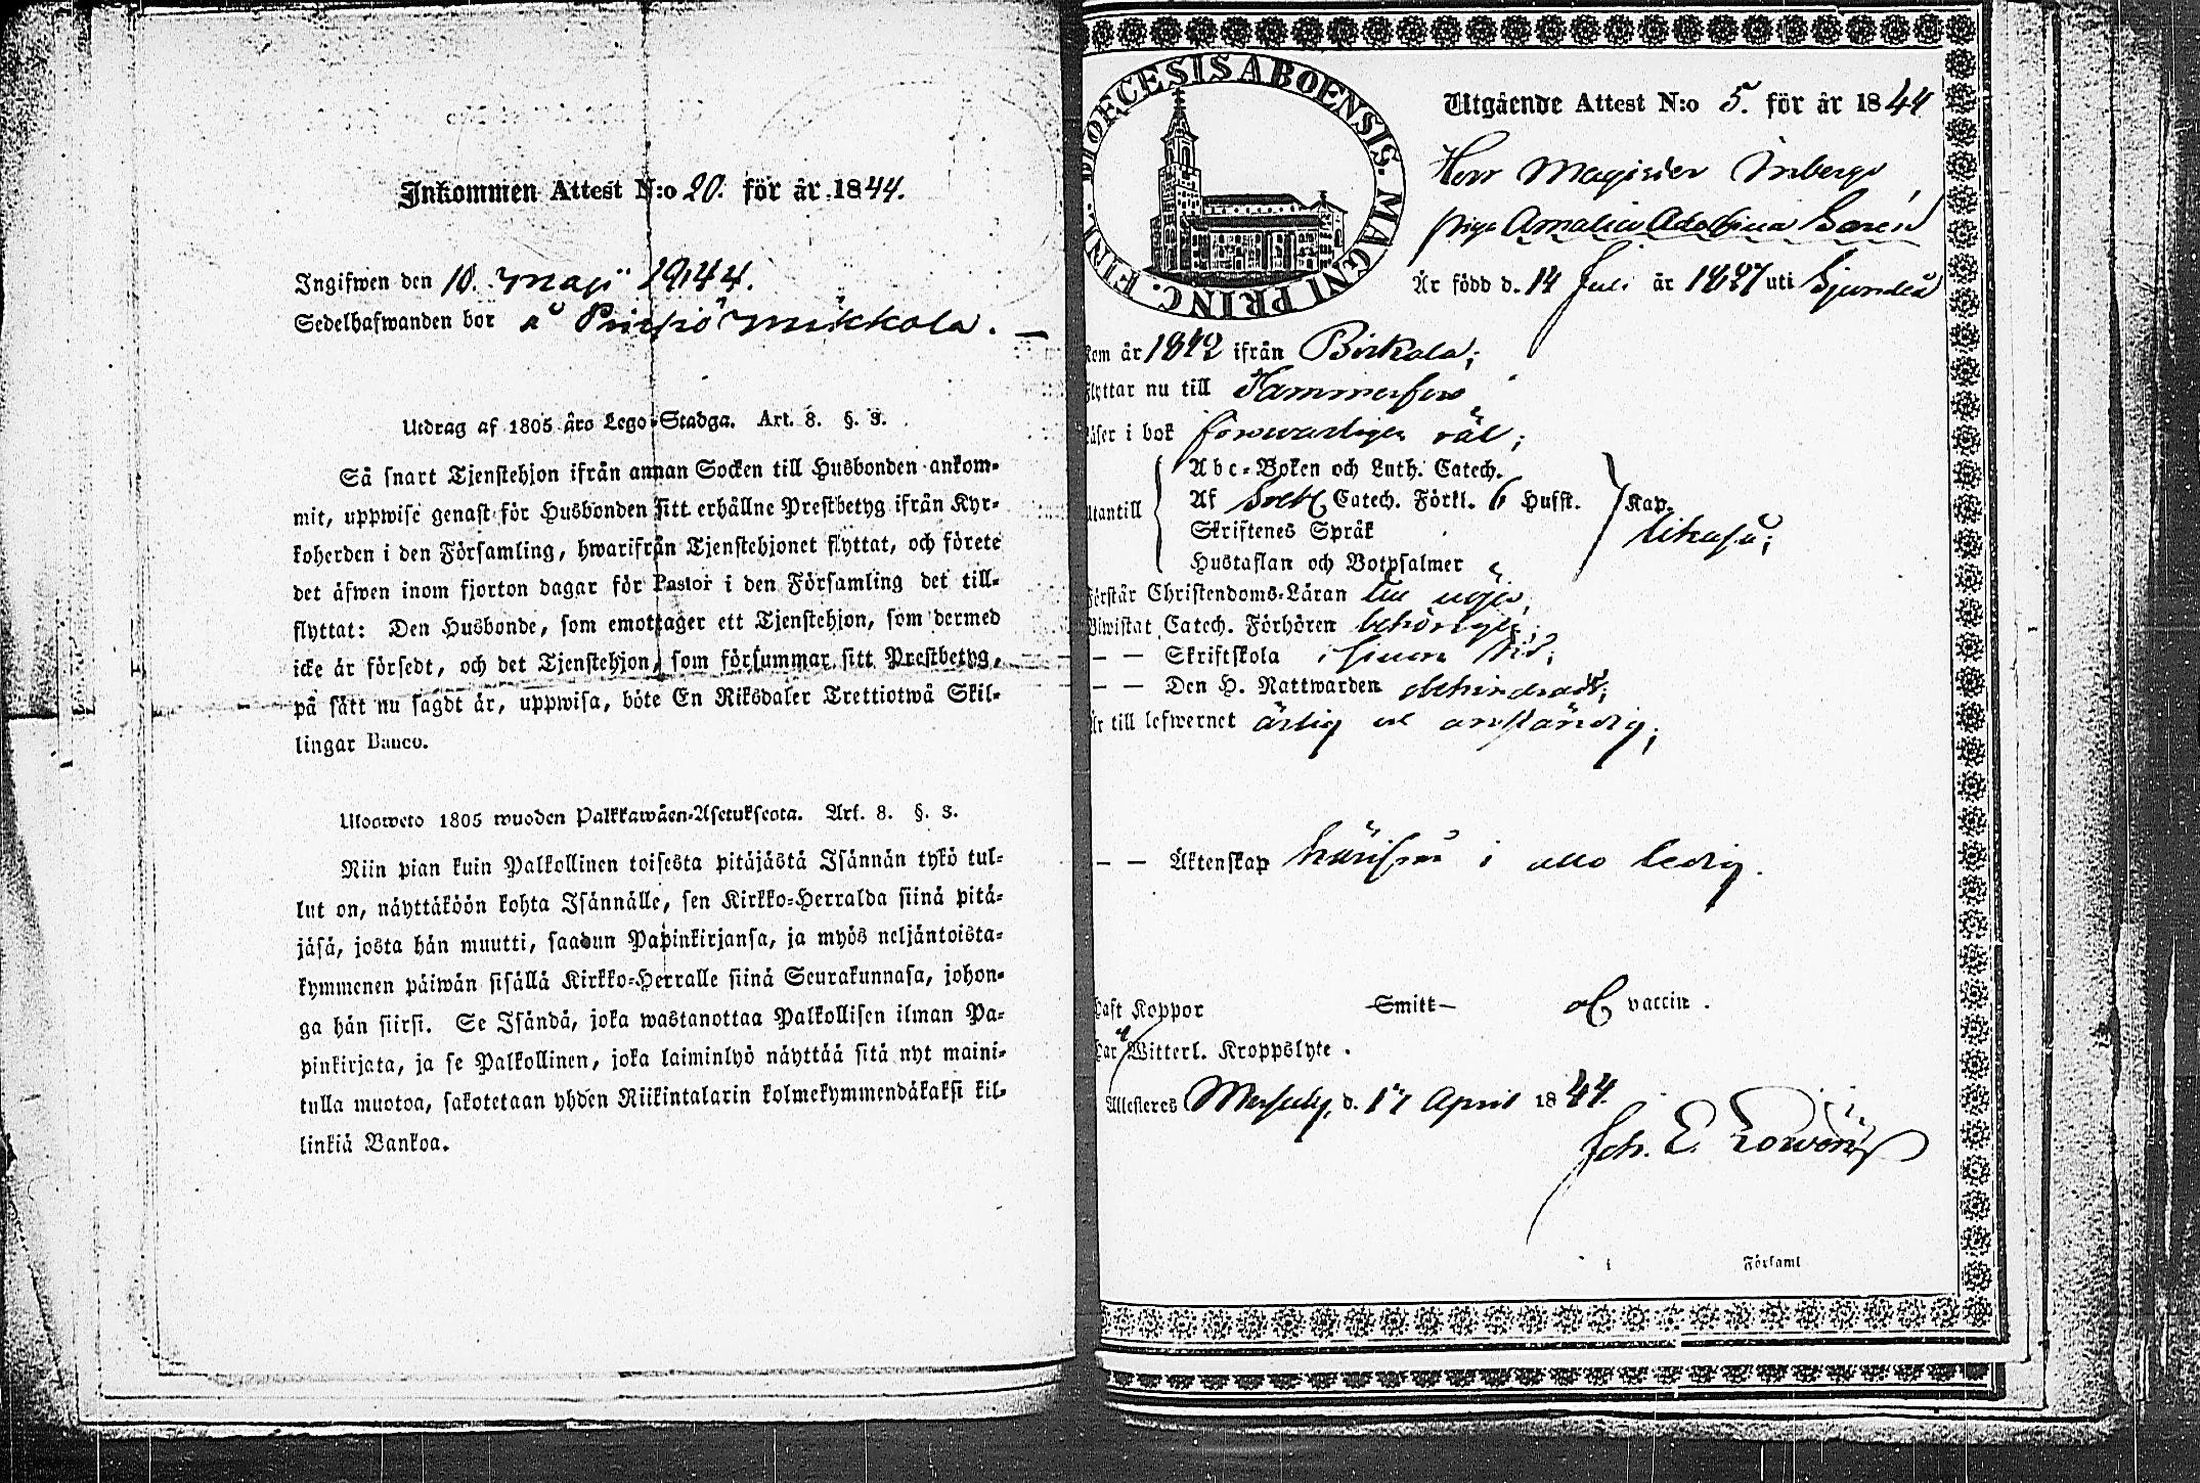 Inkommen Attest N:o 20. för år 1844.
Ingifwen den 10. Maji 1844.
Sedelhafwanden bor å Mikkola.
Utdrag af 1805 års Lego-Stadga. Art. 8. §. 3.
Så snart Tjenstehjon ifrån annan Socken till Husbonden ankom-
mit, uppwise genast för Husbonden sitt erhållne Prestbetyg ifrån Kyr-
koherden i den Församling, hwarifrån Tjenstehjonet flyttat, och förete
det äfwen inom fjorton dagar för Pastor i den Församling det till-
flyttat: Den Husbonde, som emottager ett Tjenstehjon, som dermed
icke är försedt, och det Tjenstehjon, som försummar sitt Prestbetyg,
på sätt nu sagdt är, uppwisa, böte En Riksdaler Trettiotwå Skil-
lingar Banco.
Uloosweto 1805 wuoden Palkkawäen-Asetuksesta. Art. 8. §. 3.
Niin pian kuin Palkollinen toisesta pitäjästä Isännän tykö tul-
lut on, näyttäköön kohta Isännälle, sen Kirkko-Herralda siinä pitä-
jäsä, josta hän muutti, saadun Papinkirjansa, ja myös neljäntoista-
kymmenen päiwän sisällä Kirkko-Herralle siinä Seurakunnasa, johon-
ga hän siirsi. Se Isändä, joka wastanottaa Palkollisen ilman Pa-
pinkirjata, ja se Palkollinen, joka laiminlyö näyttää sitä nyt maini-
tulla muotoa, sakotetaan yhden Riikintalarin kolmekymmendäkaksi kil-
linkiä Bankoa.
DIOECESIS ABOENSIS. MAGNI PRINC. FINL.
Utgående Attest N:o 5. för år 1844
Herr Magister
piga Amalia Adolfina
Är född d. 14 Juli år 1827 uti Sjundeå
kom år 1842 ifrån Birkala;
flyttar nu till Tammerfors
läser i bok förswarligen väl;
Abc-Boken och Luth. Catech.
Af Catech. Förkl. 6 Hufst. Kap.
utantill
Skriftenes Språk likaså;
Hustaflan och Botpsalmer
förstår Christendoms-Läran till nöje,
Biwistat Catech. Förhören behörigen;
— — Skriftskola i sinom tid;
— — Den H. Nattwarden obehindradt;
Är till lefwernet ärlig och anständig;
— — Äktenskap härifrån i allo ledig.
haft Koppor Smitt vaccin.
har Witterl. Kroppslyte.
Attesteres d. 17 April 1844.
Joh. E.
i Församl